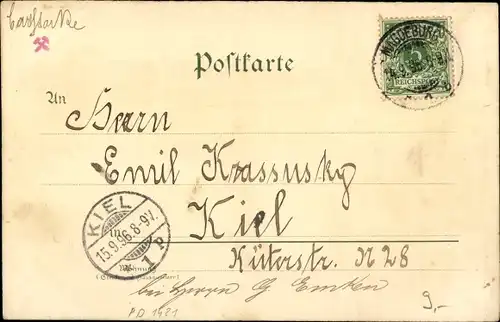 Postkarte
MAGDEBURG
REICHSPOST
An
Herrn
Emil Krassusky
in
Kiel
Küterstr. N 28
Wohnung
bei Herrn G. Emken
KIEL
15.9.96.8-9V.
1 P
PD 1921
9,-